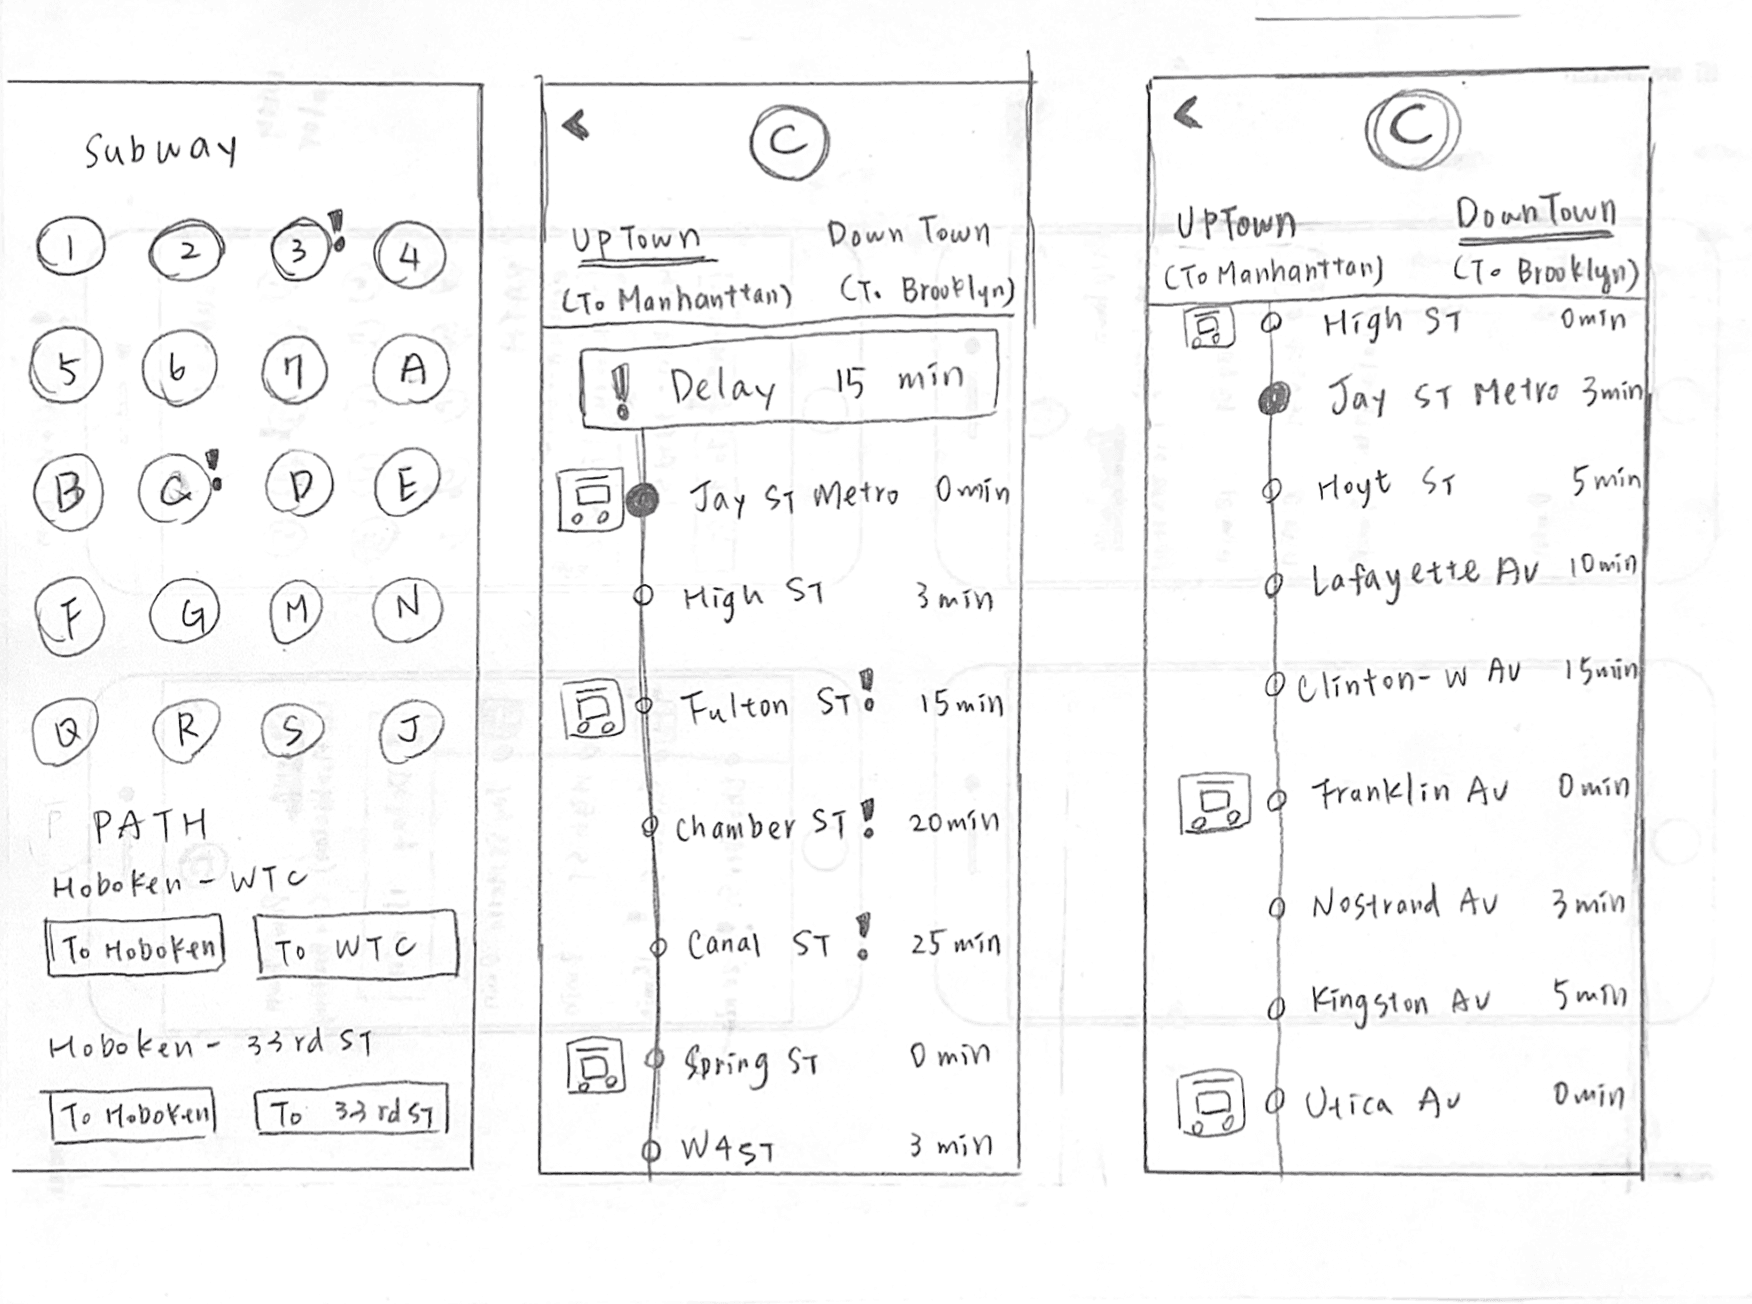 Subway
1 2 3! 4
5 6 7 A
B C! D E
F G M N
Q R S J
PATH
Hoboken - WTC
To Hoboken To WTC
Hoboken - 33rd ST
To Hoboken To 33rd ST
<
C
UPTown Down Town
(To Manhanttan) (To Brooklyn)
! Delay 15 min
Jay ST Metro 0min
High ST 3min
Fulton ST! 15min
Chamber ST! 20min
Canal ST! 25min
Spring ST 0min
W4ST 3min
<
C
UPTown DownTown
(To Manhanttan) (To Brooklyn)
High ST 0min
Jay ST Metro 3min
Hoyt ST 5min
Lafayette AV 10min
Clinton-W AV 15min
Franklin AV 0min
Nostrand AV 3min
Kingston AV 5min
Utica AV 0min